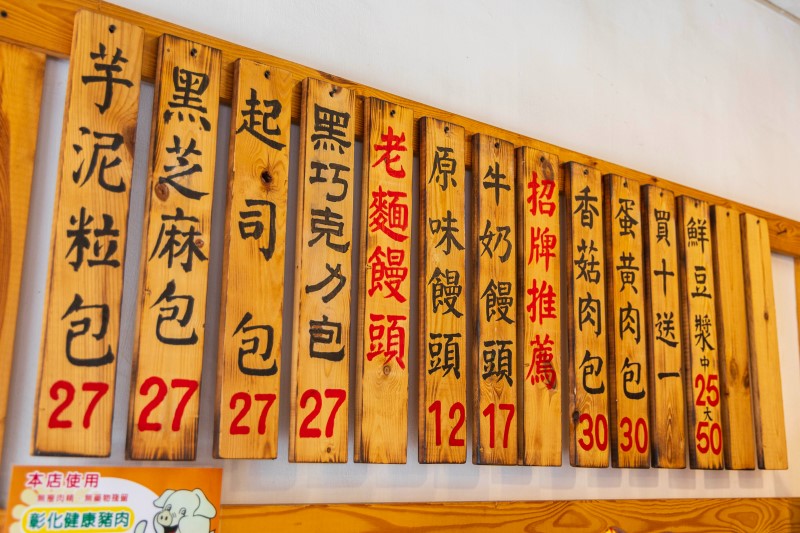 芋泥粒包27
黑芝麻包27
起司包27
黑巧克力包27
老麵饅頭
原味饅頭12
牛奶饅頭17
招牌推薦
香菇肉包30
蛋黃肉包30
買十送一
鮮豆漿中25大50
本店使用
彰化健康豬肉